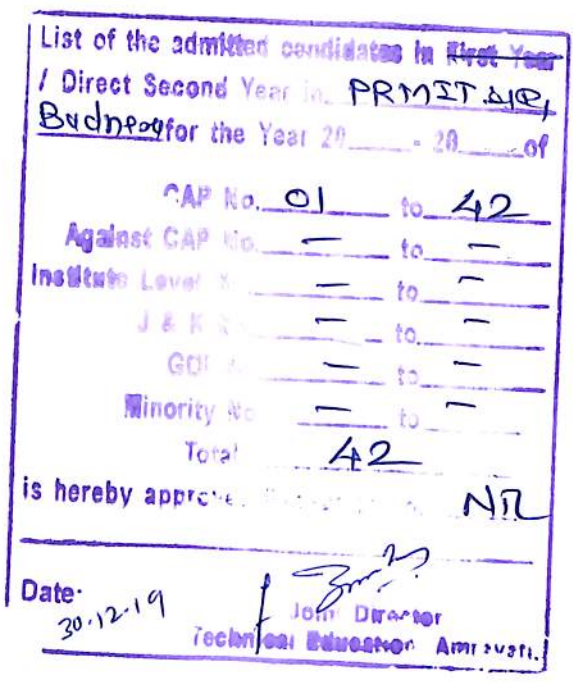 List of the admitted candidates in First Year
/ Direct Second Year in. PRMIT &R,
Badnera for the Year 20____ - 20____of
CAP No. 01 to 42
Against CAP No. — to —
Institute Level No. — to —
J & K No. — to —
GOI No. — to —
Minority No. — to —
Total 42
is hereby approved NIL
Date:
30.12.19
Joint Director
Technical Education Amravati.